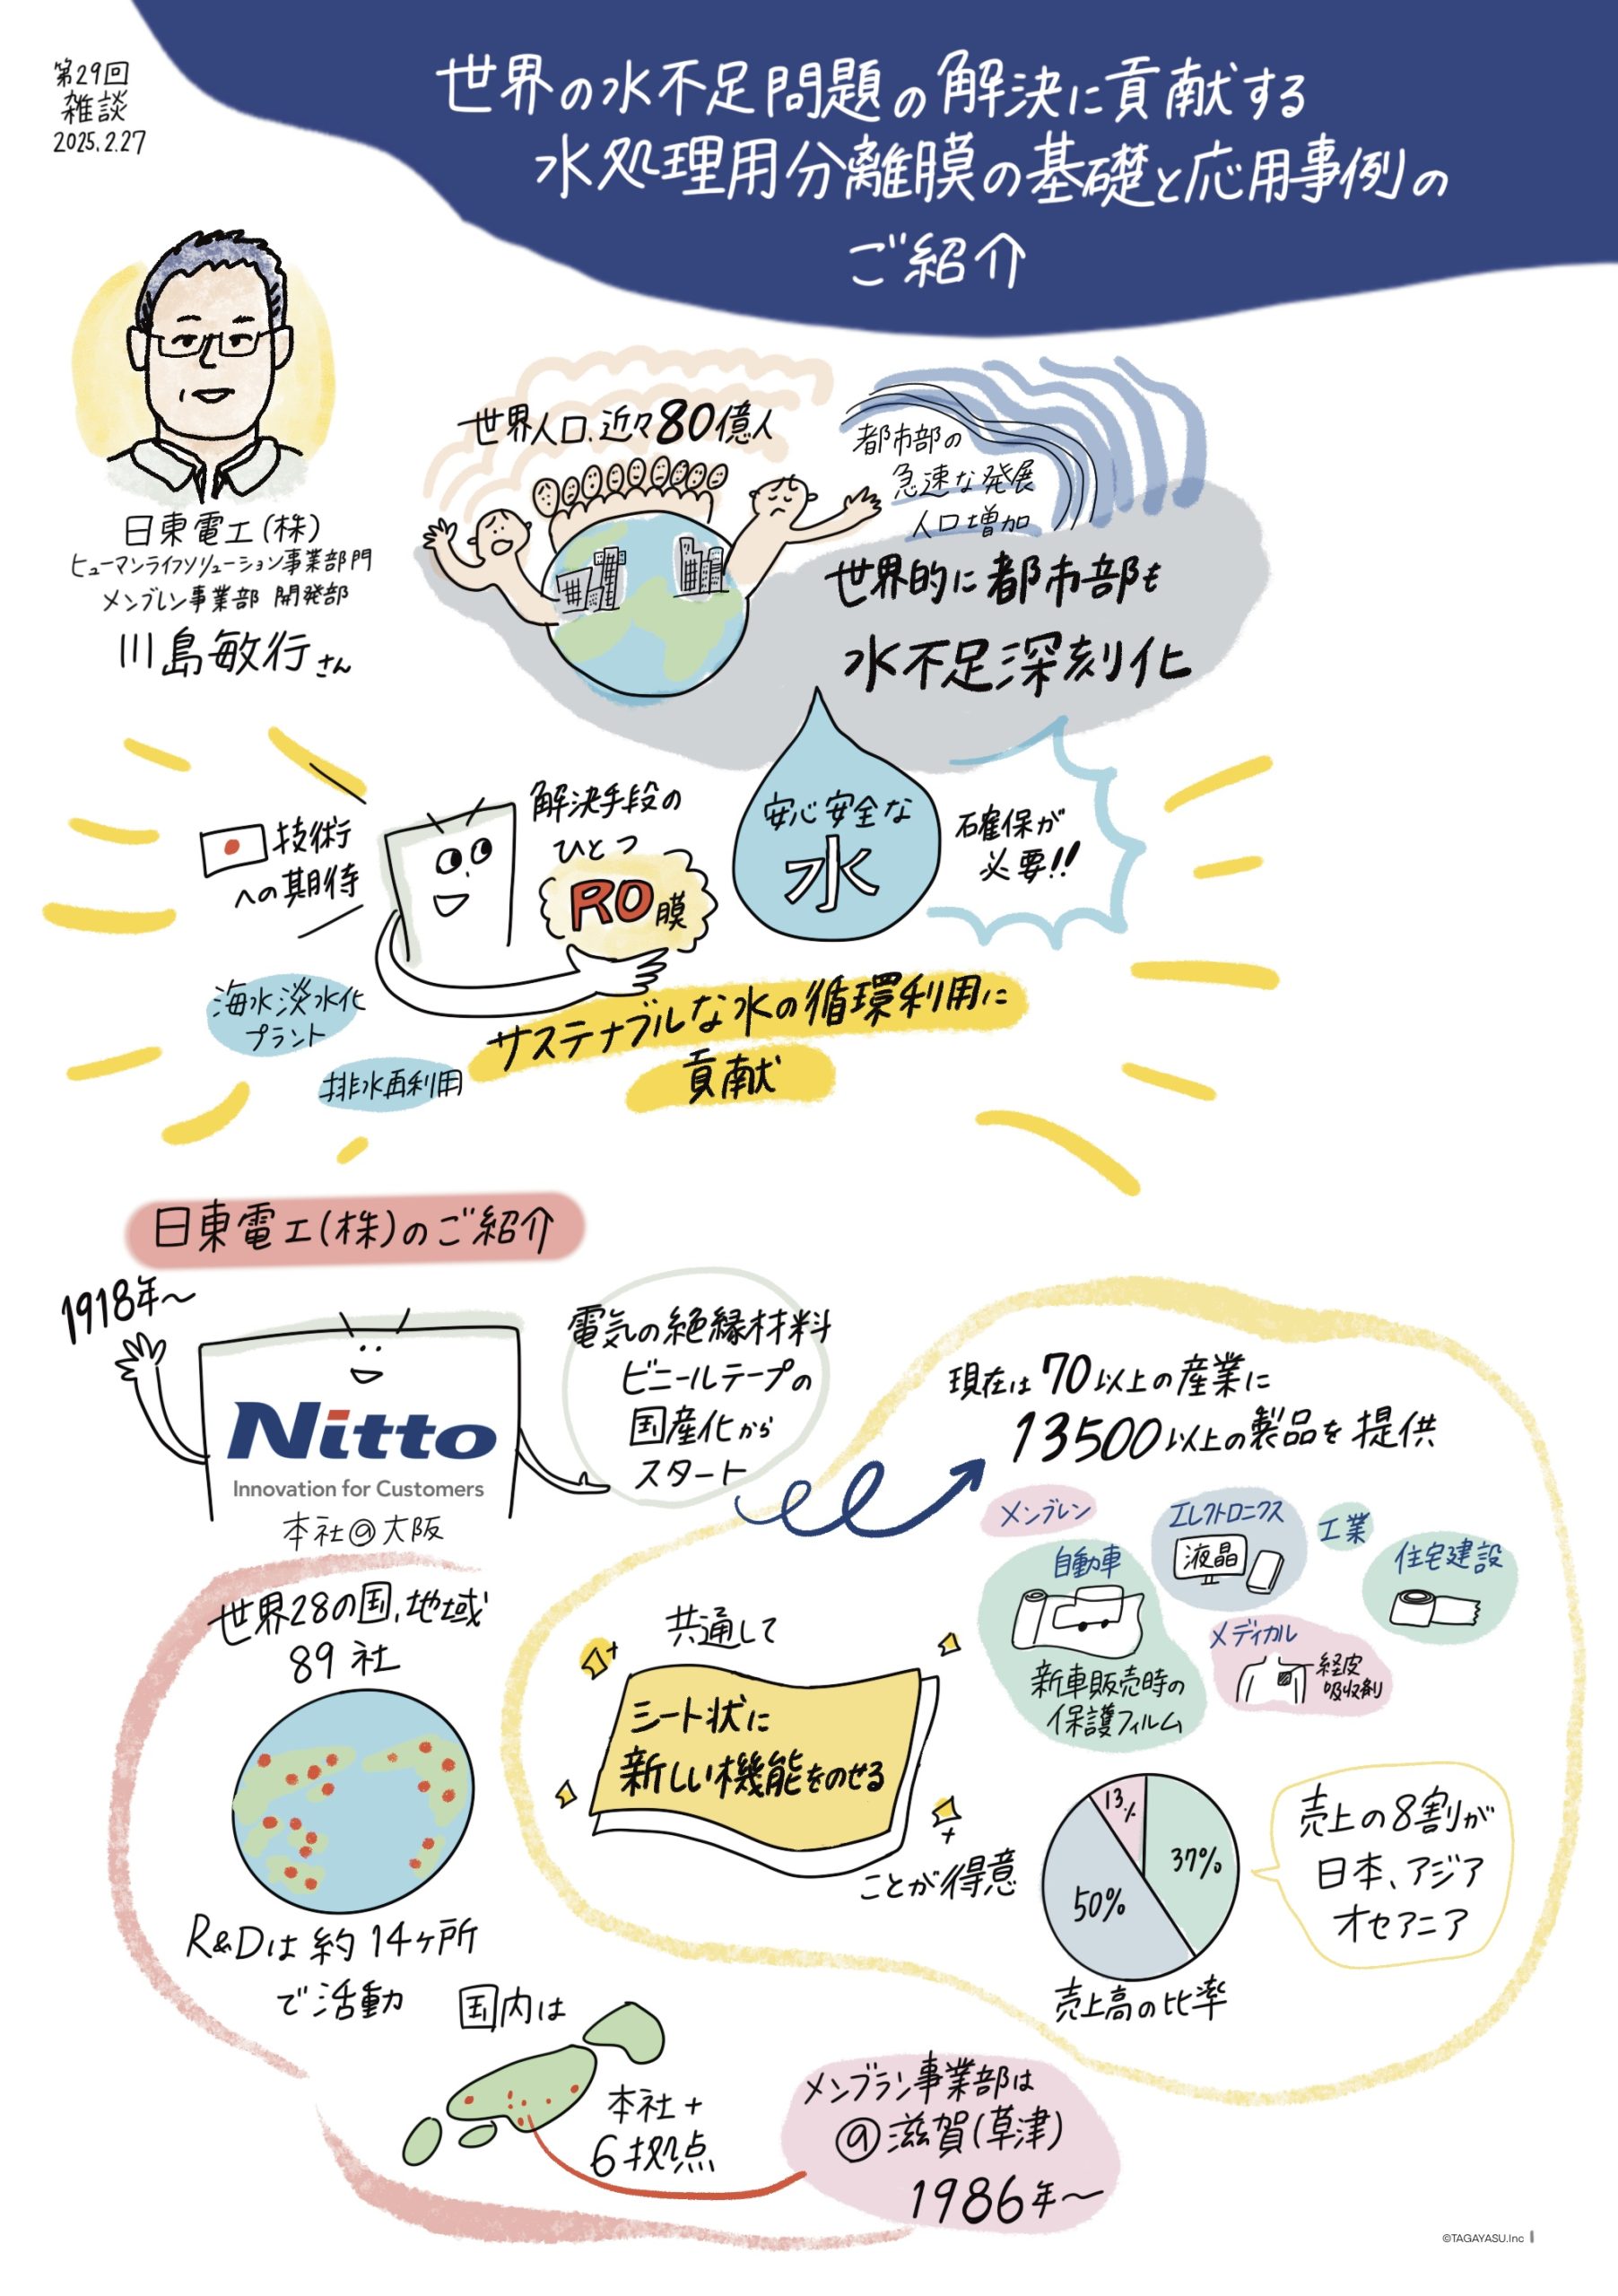 第29回
雑談
2025.2.27
世界の水不足問題の解決に貢献する
水処理用分離膜の基礎と応用事例の
ご紹介
日東電工(株)
ヒューマンライフソリューション事業部門
メンブレン事業部 開発部
川島敏行さん
世界人口、近々80億人
都市部の
急速な発展
人口増加
世界的に都市部も
水不足深刻化
技術
への期待
解決手段の
ひとつ
RO膜
安心安全な
水
確保が
必要!!
海水淡水化
プラント
排水再利用
サステナブルな水の循環利用に
貢献
日東電工(株)のご紹介
1918年～
Nitto
Innovation for Customers
本社@大阪
電気の絶縁材料
ビニールテープの
国産化から
スタート
現在は70以上の産業に
13500以上の製品を提供
メンブレン
エレクトロニクス
液晶
工業
自動車
新車販売時の
保護フィルム
住宅建設
メディカル
経皮
吸収剤
世界28の国、地域
89社
R&Dは約14ヶ所
で活動
共通して
シート状に
新しい機能をのせる
ことが得意
13%
37%
50%
売上高の比率
売上の8割が
日本、アジア
オセアニア
国内は
本社+
6拠点
メンブラン事業部は
@滋賀(草津)
1986年～
©TAGAYASU.Inc